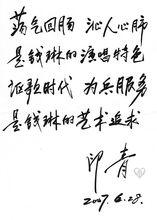 荡气回肠 沁人心肺
是钱琳的演唱特色
讴歌时代 为兵服务
是钱琳的艺术追求
印青
2007.6.28.